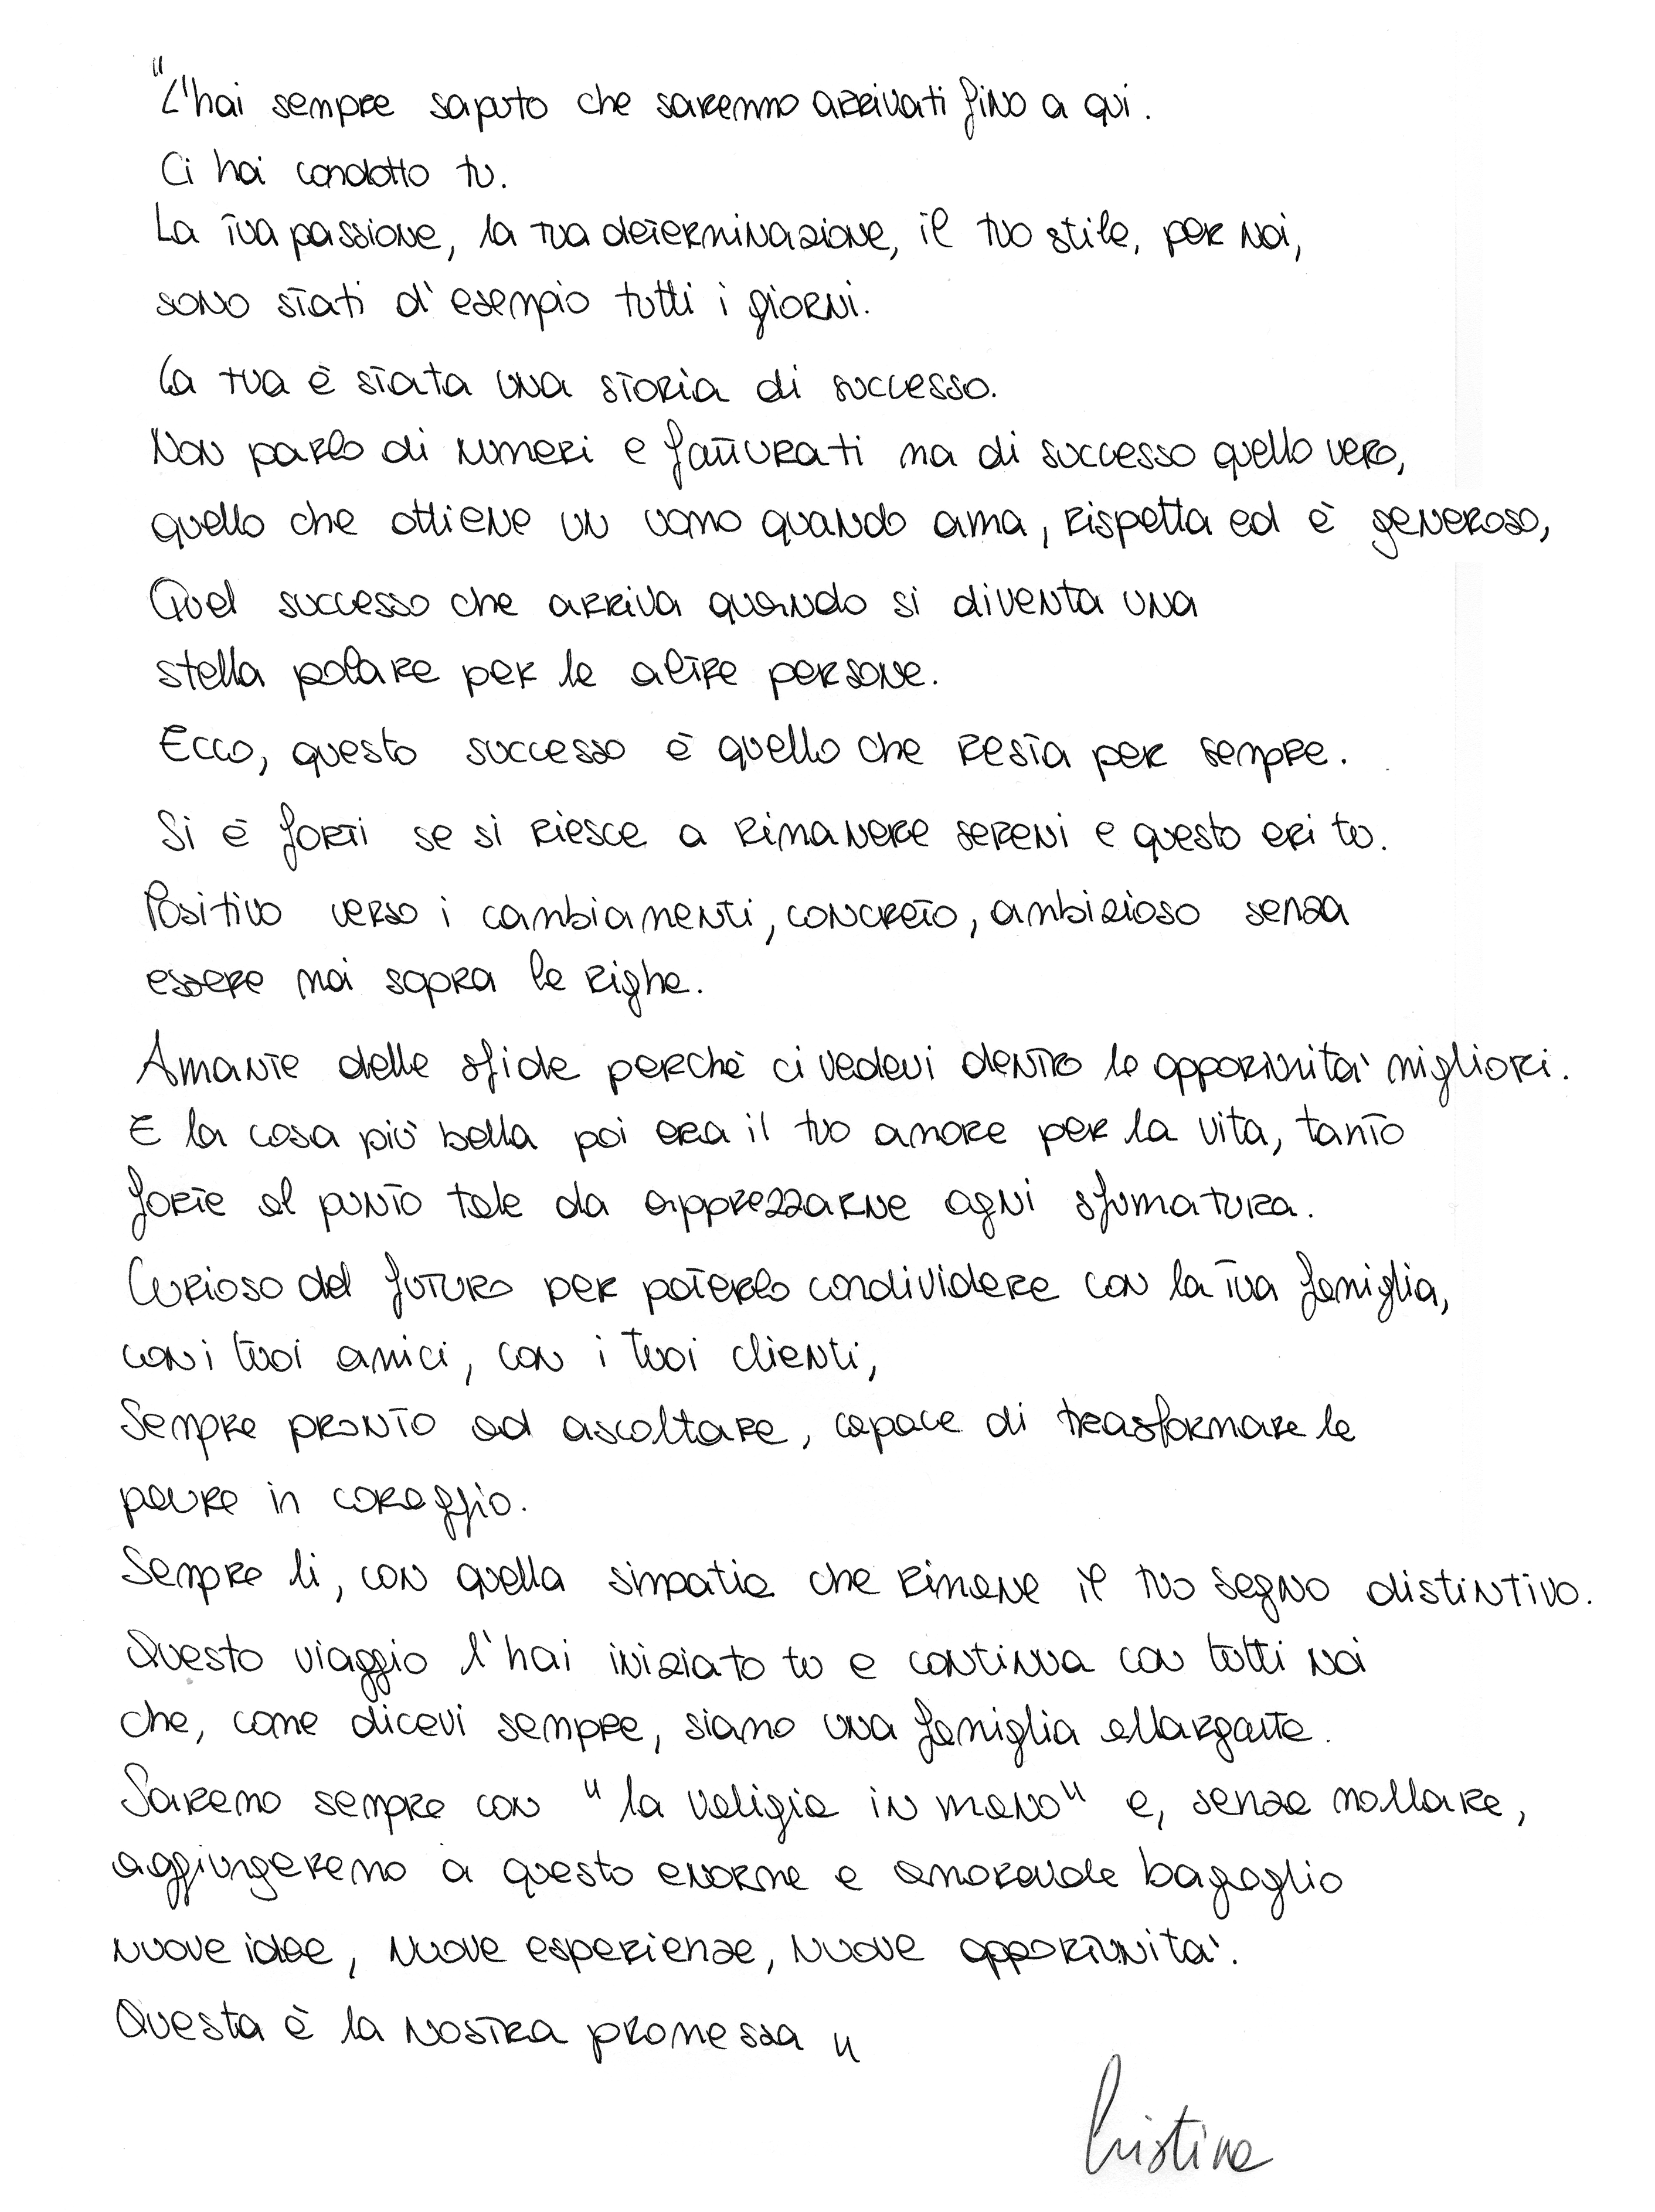 "L'hai sempre saputo che saremmo arrivati fino a qui.
Ci hai condotto tu.
La tua passione, la tua determinazione, il tuo stile, per noi,
sono stati d'esempio tutti i giorni.
La tua è stata una storia di successo.
Non parlo di numeri e fatturati ma di successo quello vero,
quello che ottiene un uomo quando ama, rispetta ed è generoso,
Quel successo che arriva quando si diventa una
stella polare per le altre persone.
Ecco, questo successo è quello che resta per sempre.
Si è forti se si riesce a rimanere sereni e questo eri tu.
Positivo verso i cambiamenti, concreto, ambizioso senza
essere mai sopra le righe.
Amante delle sfide perchè ci vedevi dentro le opportunita' migliori.
E la cosa più bella poi era il tuo amore per la vita, tanto
forte al punto tale da apprezzarne ogni sfumatura.
Curioso del futuro per poterlo condividere con la tua famiglia,
con i tuoi amici, con i tuoi clienti,
Sempre pronto ad ascoltare, capace di trasformare le
paure in coraggio.
Sempre lì, con quella simpatia che rimane il tuo segno distintivo.
Questo viaggio l'hai iniziato tu e continua con tutti noi
che, come dicevi sempre, siamo una famiglia allargata.
Saremo sempre con "la valigia in mano" e, senza mollare,
aggiungeremo a questo enorme e amorevole bagaglio
nuove idee, nuove esperienze, nuove opportunita'.
Questa è la nostra promessa"
Cristina